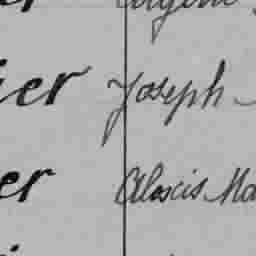 ier Joseph
er Alexis Ma